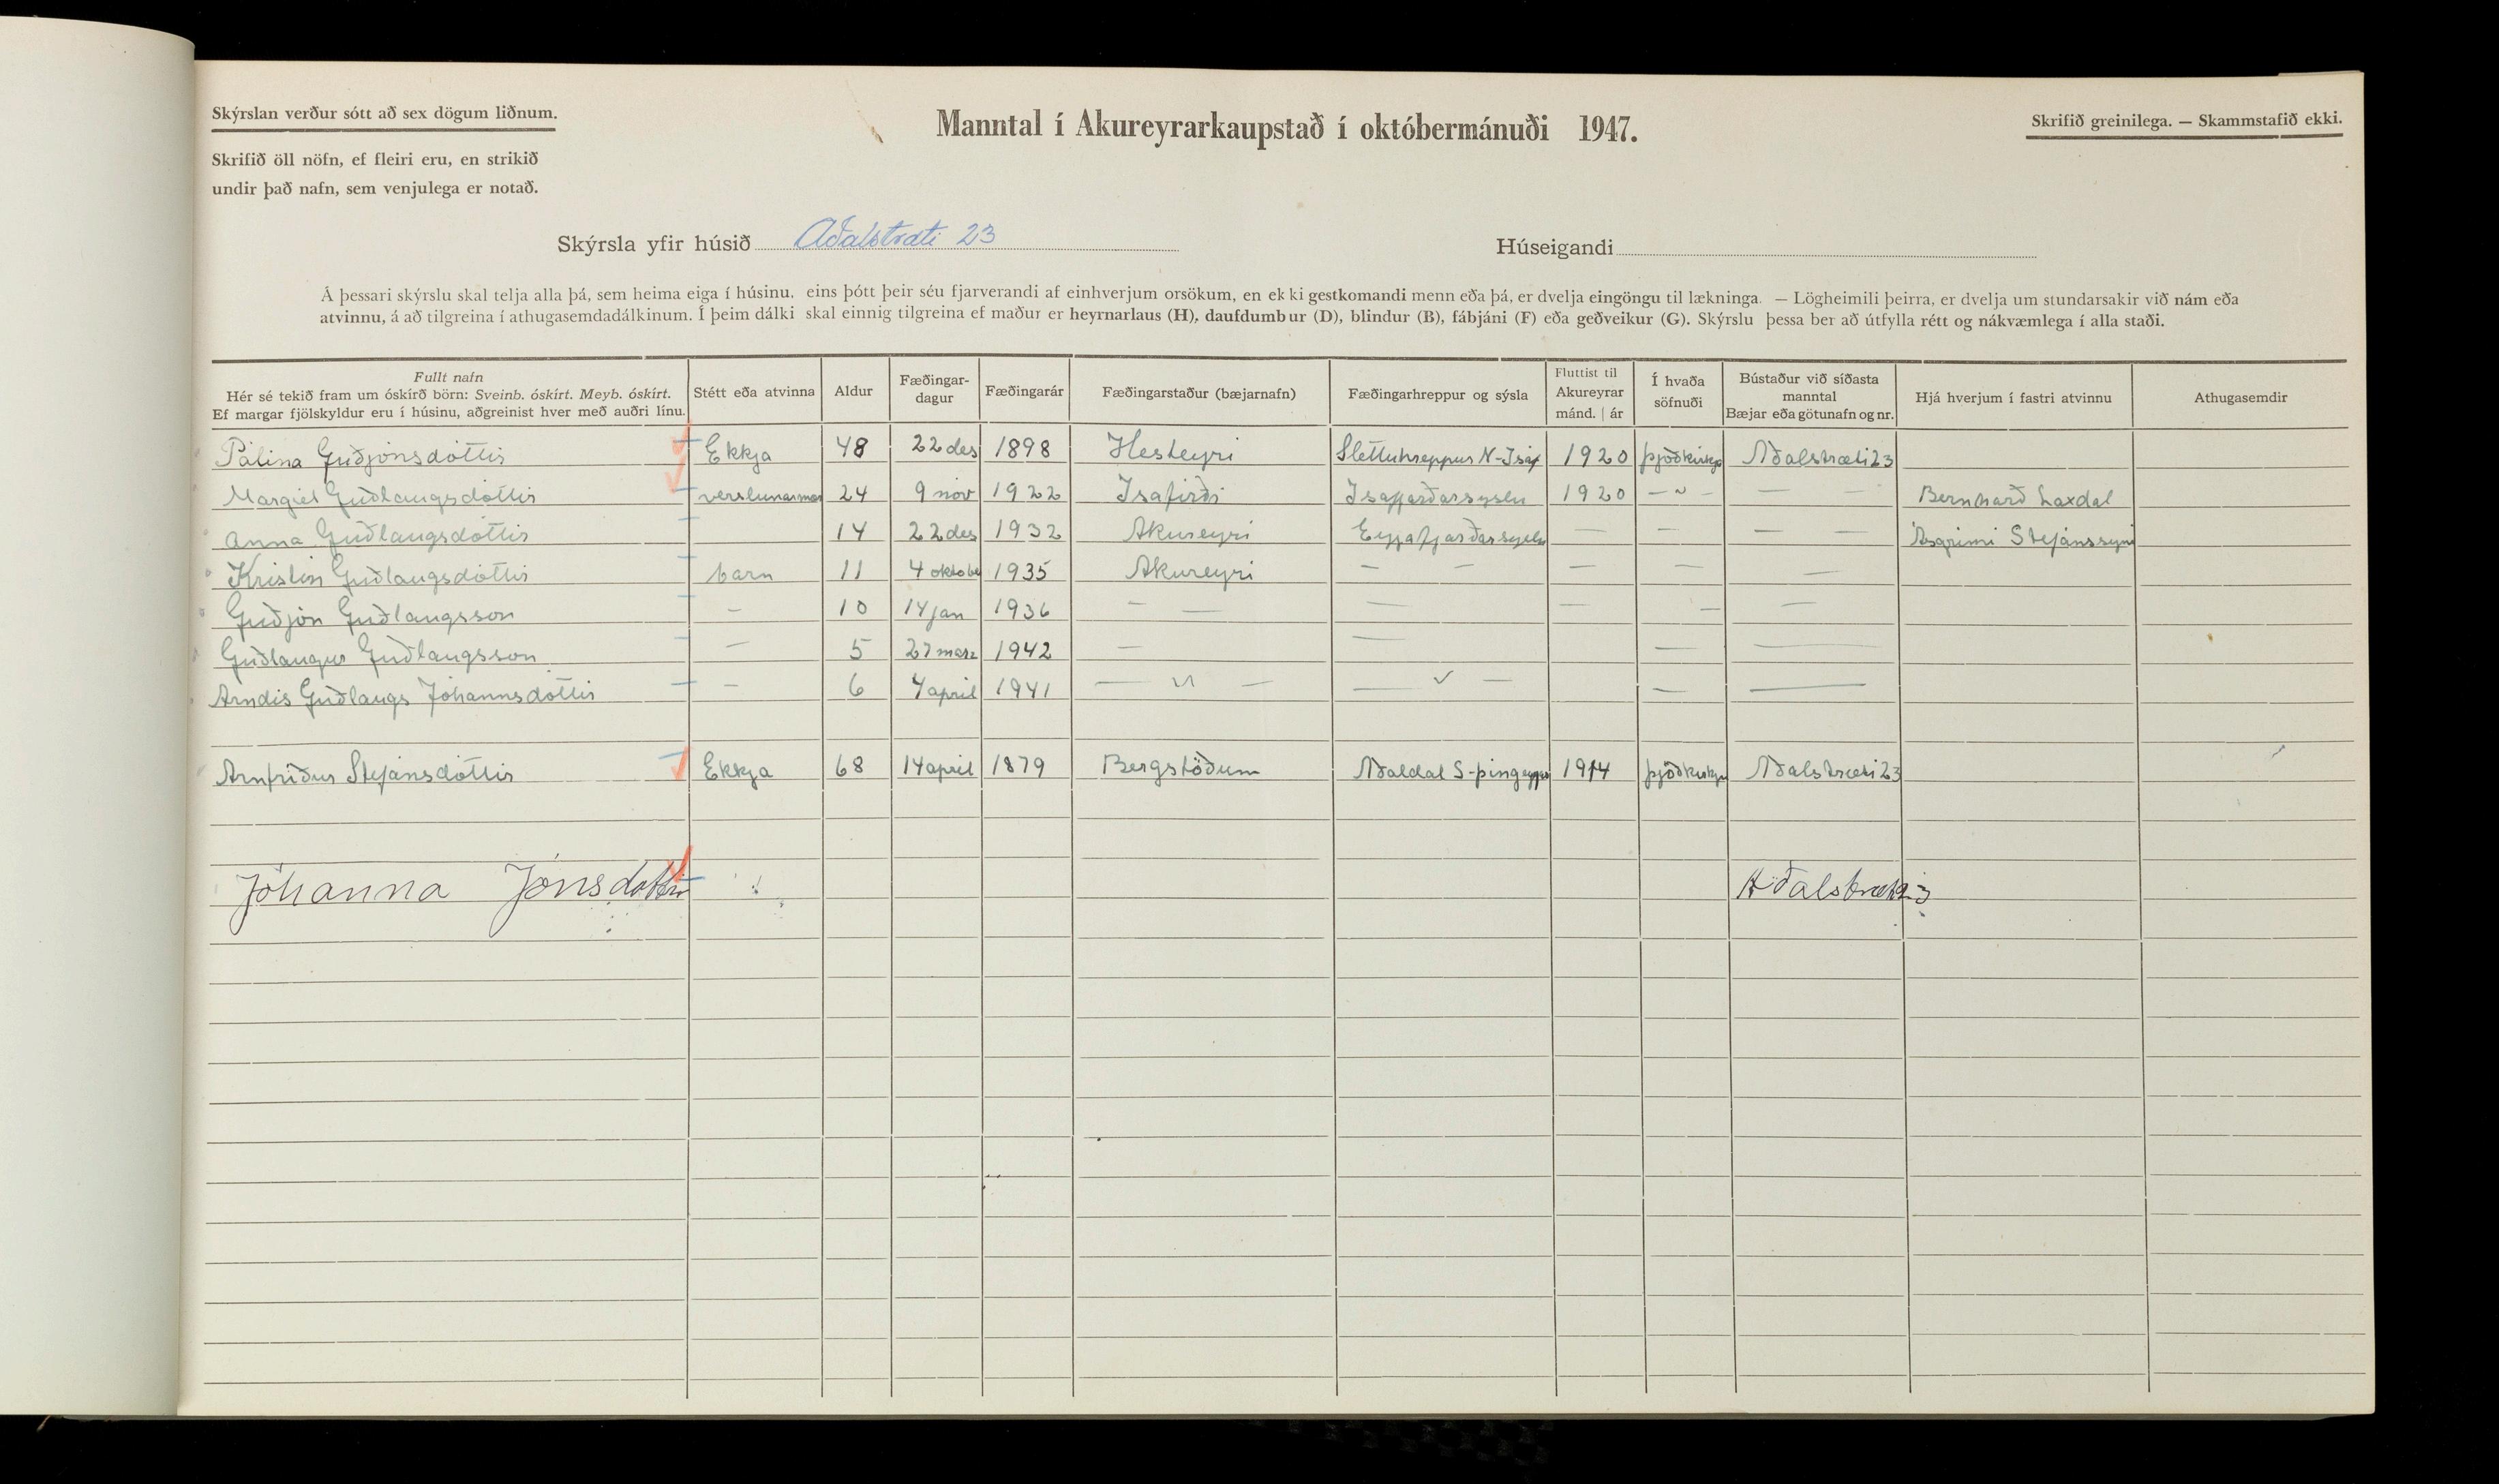 Skýrslan verður sótt að sex dögum liðnum.
Manntal í Akureyrarkaupstað í októbermánuði 1947.
Skrifið greinilega. — Skammstafið ekki.
Skrifið öll nöfn, ef fleiri eru, en strikið
undir það nafn, sem venjulega er notað.
Skýrsla yfir húsið Aðalstræti 23 Húseigandi
Á þessari skýrslu skal telja alla þá, sem heima eiga í húsinu, eins þótt þeir séu fjarverandi af einhverjum orsökum, en ekki gestkomandi menn eða þá, er dvelja eingöngu til lækninga. — Lögheimili þeirra, er dvelja um stundarsakir við nám eða
atvinnu, á að tilgreina í athugasemdadálkinum. Í þeim dálki skal einnig tilgreina ef maður er heyrnarlaus (H), daufdumbur (D), blindur (B), fábjáni (F) eða geðveikur (G). Skýrslu þessa ber að útfylla rétt og nákvæmlega í alla staði.
Fullt nafn
Hér sé tekið fram um óskírð börn: Sveinb. óskírt. Meyb. óskírt.
Ef margar fjölskyldur eru í húsinu, aðgreinist hver með auðri línu.
Stétt eða atvinna
Aldur
Fæðingar-
dagur
Fæðingarár
Fæðingarstaður (bæjarnafn)
Fæðingarhreppur og sýsla
Fluttist til
Akureyrar
mánd. | ár
Í hvaða
söfnuði
Bústaður við síðasta
manntal
Bæjar eða götunafn og nr.
Hjá hverjum í fastri atvinnu
Athugasemdir
Pálina Guðjónsdóttir Ekkja 48 22 des 1898 Hesteyri Sléttuhreppur N-Ísaf 1920 þjóðkirkj Aðalstræti 23
Margrét Guðlaugsdóttir verslunarmær 24 9 nóv 1922 Ísafirði Ísafjarðarsýslu 1920 — " — — — Bernharð Laxdal
Anna Guðlaugsdóttir 14 22 des 1932 Akureyri Eyjafjarðarsýslu — — — — Ásgrími Stefánssyni
Kristín Guðlaugsdóttir barn 11 4 október 1935 Akureyri — — — — —
Guðjón Guðlaugsson — 10 14 jan 1936 — — — — — —
Guðlaugur Guðlaugsson — 5 27 mars 1942 — — — —
Arndís Guðlaugs Jóhannsdóttir — 6 4 april 1941 — " — — " — — —
Arnfríður Stefánsdóttir Ekkja 68 14 april 1879 Bergstöðum Aðaldal S-þingeyjar 1914 þjóðkirkju Aðalstræti 23
Jóhanna Jónsdóttir Aðalstræti 23